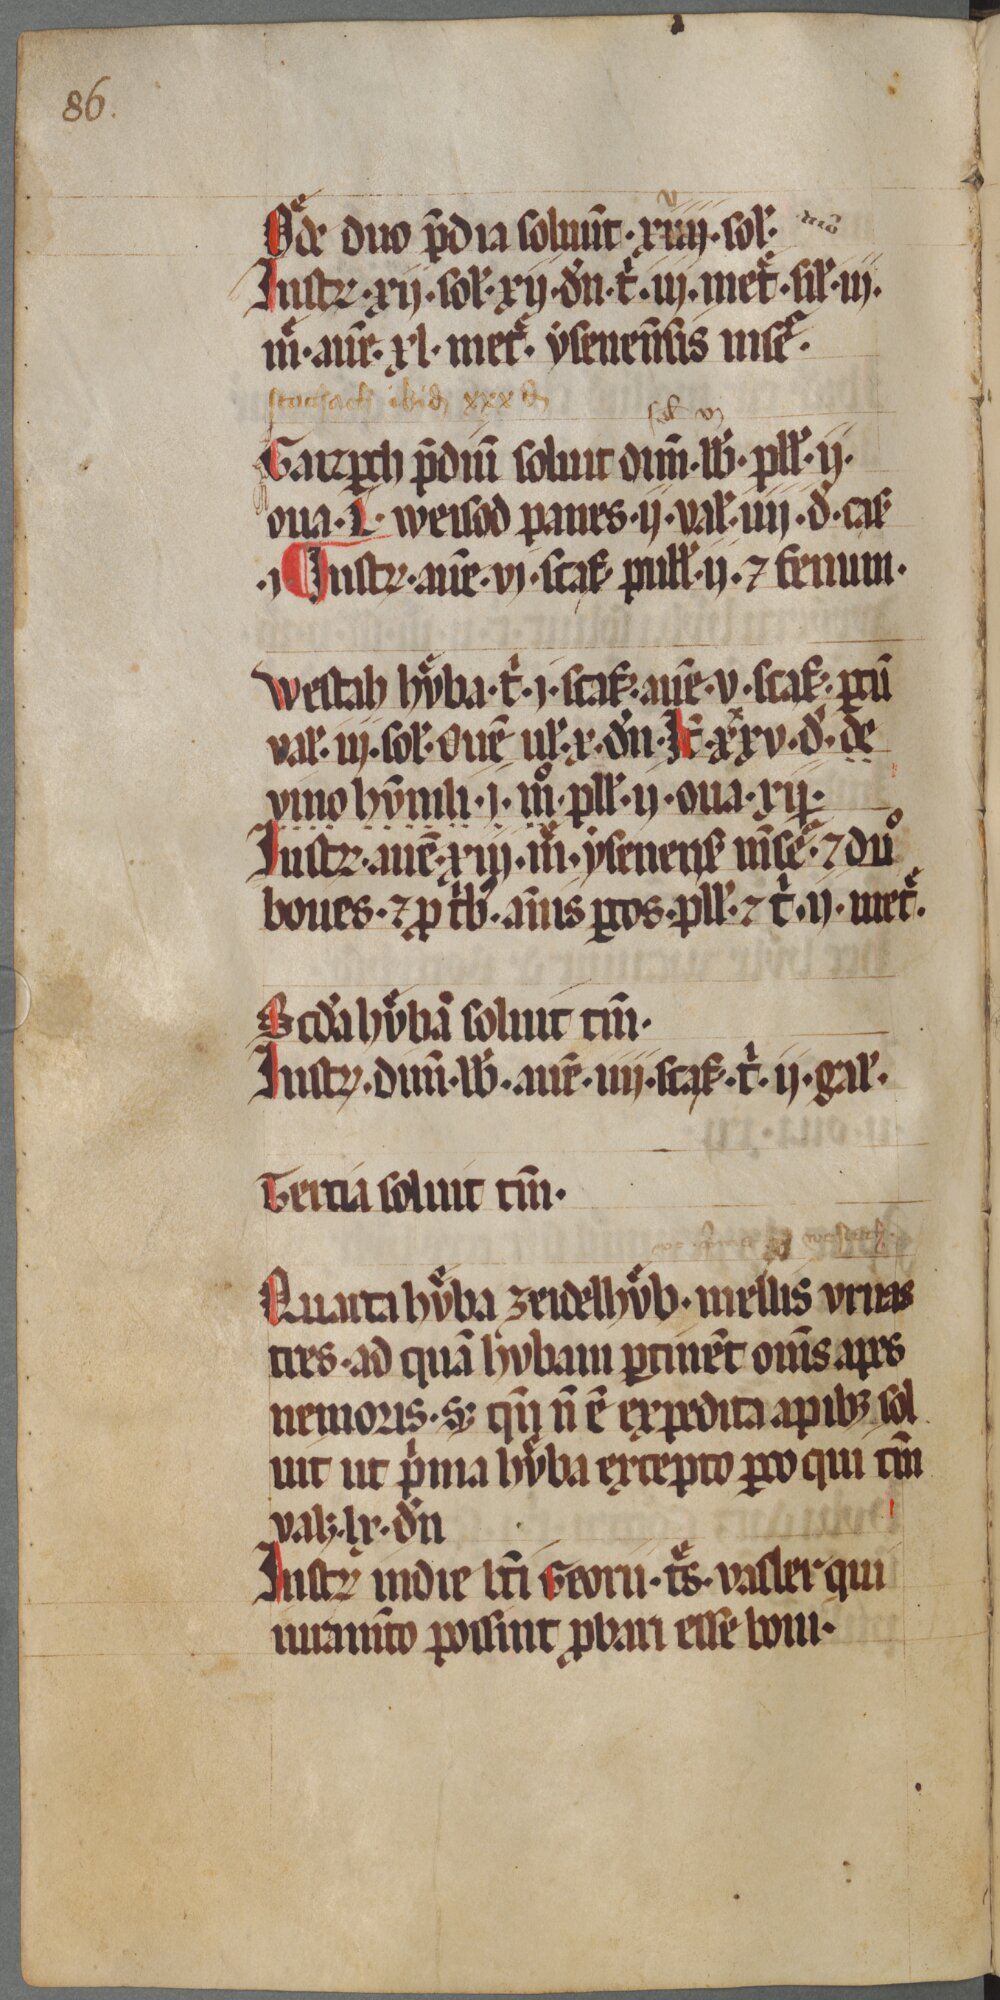 86.
Oͤde duo p̄dia soluūt · xviij · sol̄ ·
Instr̄ · xij · sol̄ · xij · dn̄ · t͛ · iij · metͤ · sil̄ · iij ·
mͤ · aueͤ · xl · metͤ · ẏsenen̄sis mēsͤ ·
stochach ibid xxx dn̄
sil̄ vj
Gaizpͨh p̄diū soluit dim̄ · lib̄ · pll̄ · ij ·
oua · L · weisod panes · ij · val̄ · iiij · d̄ · cas̄
· j Instr̄ · aueͤ · vj · scaf̄ · pull̄ · ij · ⁊ fenum ·
Westah hvͤba · t͛ · j · scaf̄ · aueͤ · v · scaf̄ · ꝑcū
val̄ · iij · sol̄ · Ouē ul̄ · x · dn̄ · It̄ · xxv · d̄ · de
vino hv̄nili · j · mͦ · pll̄ · ij · oua · xij ·
Instr̄ · aueͤ · xiij · mͤ · ẏsenens̄ mēsͤ · ⁊ duͦ
boues · ⁊ ꝑ t͛b · ānis ꝑcos · pll̄ · ⁊ t͛ · ij · metͤ ·
Scd̄a hvͤba soluit tm̄ ·
Instr̄ · dim̄ · lib̄ · aueͤ · iiij · scaf̄ · t͛ · ij · gal̄ ·
Tercia soluit tm̄ ·
Quarta hvͤba zeidelhvͤb · mellis vrnas
tres · ad quā hvbam ꝑtinēt om̄s apes
nemoris · Sꝫ qn̄ n̄ ē expedita apibꝫ sol
uit ut p͛ma hvͤba excepto ꝑco qui tm̄
valꝫ · lx · dn̄
Instr̄ in die sc̄i Georii · tͤs · vasler qui
iuram̄to possint ꝓbari esse boni ·